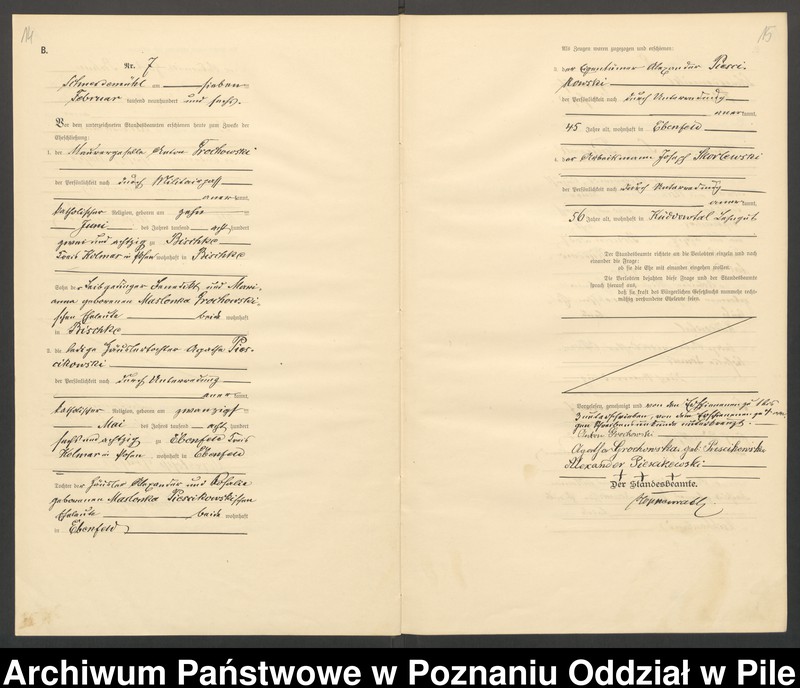 14
B.
Nr. 7
Schneidemühl am sieben
Februar tausend neunhundert und sechs.
Vor dem unterzeichneten Standesbeamten erschienen heute zum Zwecke der
Eheschließung:
1. der Maurergeselle Anton Grochowski
der Persönlichkeit nach durch Militairpaß
aner kannt,
katholischer Religion, geboren am zehn
Juni des Jahres tausend acht hundert
zwei und achtzig zu Bischke
Kreis Kolmar i/ Posen wohnhaft in Bischke
Sohn der Benedikt und Mari-
anna geborenen Maslonka Grochowski-
schen Eheleute beide wohnhaft
in Bischke
2. die ledige Häuslertochter Agathe Pies-
cikowski
der Persönlichkeit nach durch Unterredung
aner kannt,
katholischer Religion, geboren am zwanzigst
Mai des Jahres tausend acht hundert
sechs und achtzig zu Ebenfeld Kreis
Kolmar i/ Posen wohnhaft in Ebenfeld
Tochter der Häusler Alexander und Rosalie
geborenen Maslonka Piescikowskischen
Eheleute beide wohnhaft
in Ebenfeld
15
Als Zeugen waren zugezogen und erschienen:
3. der Eigentümer Alexander Piesci-
kowski
der Persönlichkeit nach durch Unterredung
aner kannt,
45 Jahre alt, wohnhaft in Ebenfeld
4. der Arbeitsmann Josef Skorlewski
der Persönlichkeit nach durch Unterredung
aner kannt,
56 Jahre alt, wohnhaft in
Der Standesbeamte richtete an die Verlobten einzeln und nach
einander die Frage:
ob sie die Ehe mit einander eingehen wollen.
Die Verlobten bejahten diese Frage und der Standesbeamte
sprach hierauf aus,
daß sie kraft des Bürgerlichen Gesetzbuchs nunmehr recht-
mäßig verbundene Eheleute seien.
Vorgelesen, genehmigt und von den Erschienenen zu 1 bis
3 unterschrieben, von dem Erschienenen zu 4 we-
gen Schreibensunkunde unterkreuzt.
Anton Grochowski
Agathe Grochowska geb. Piescikowski
Alexander Piescikowski
+ + +
Der Standesbeamte.
Archiwum Państwowe w Poznaniu Oddział w Pile